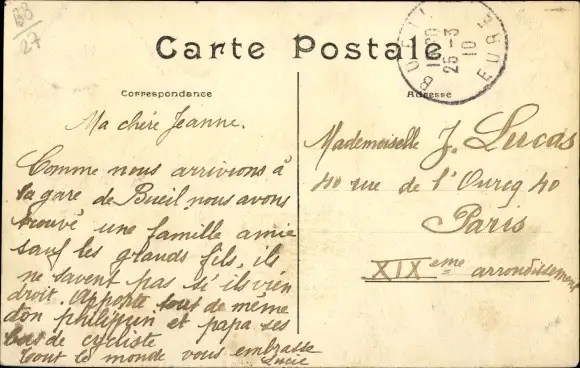 BB
27
Carte Postale
BUEIL
18 30
25 - 3
10
EURE
Correspondance
Adresse
Ma chère Jeanne.
Comme nous arrivions à
la gare de Bueil nous avons
trouvé une famille amie
sauf les grands fils, ils
ne savent pas si ils vien
droit. Apporte tout de même
don philippin et papa ses
bas de cycliste
tout le monde vous embrasse
Lucie
Mademoiselle J. Lucas
40 rue de l'Ourcq 40
Paris
XIX eme arrondissement